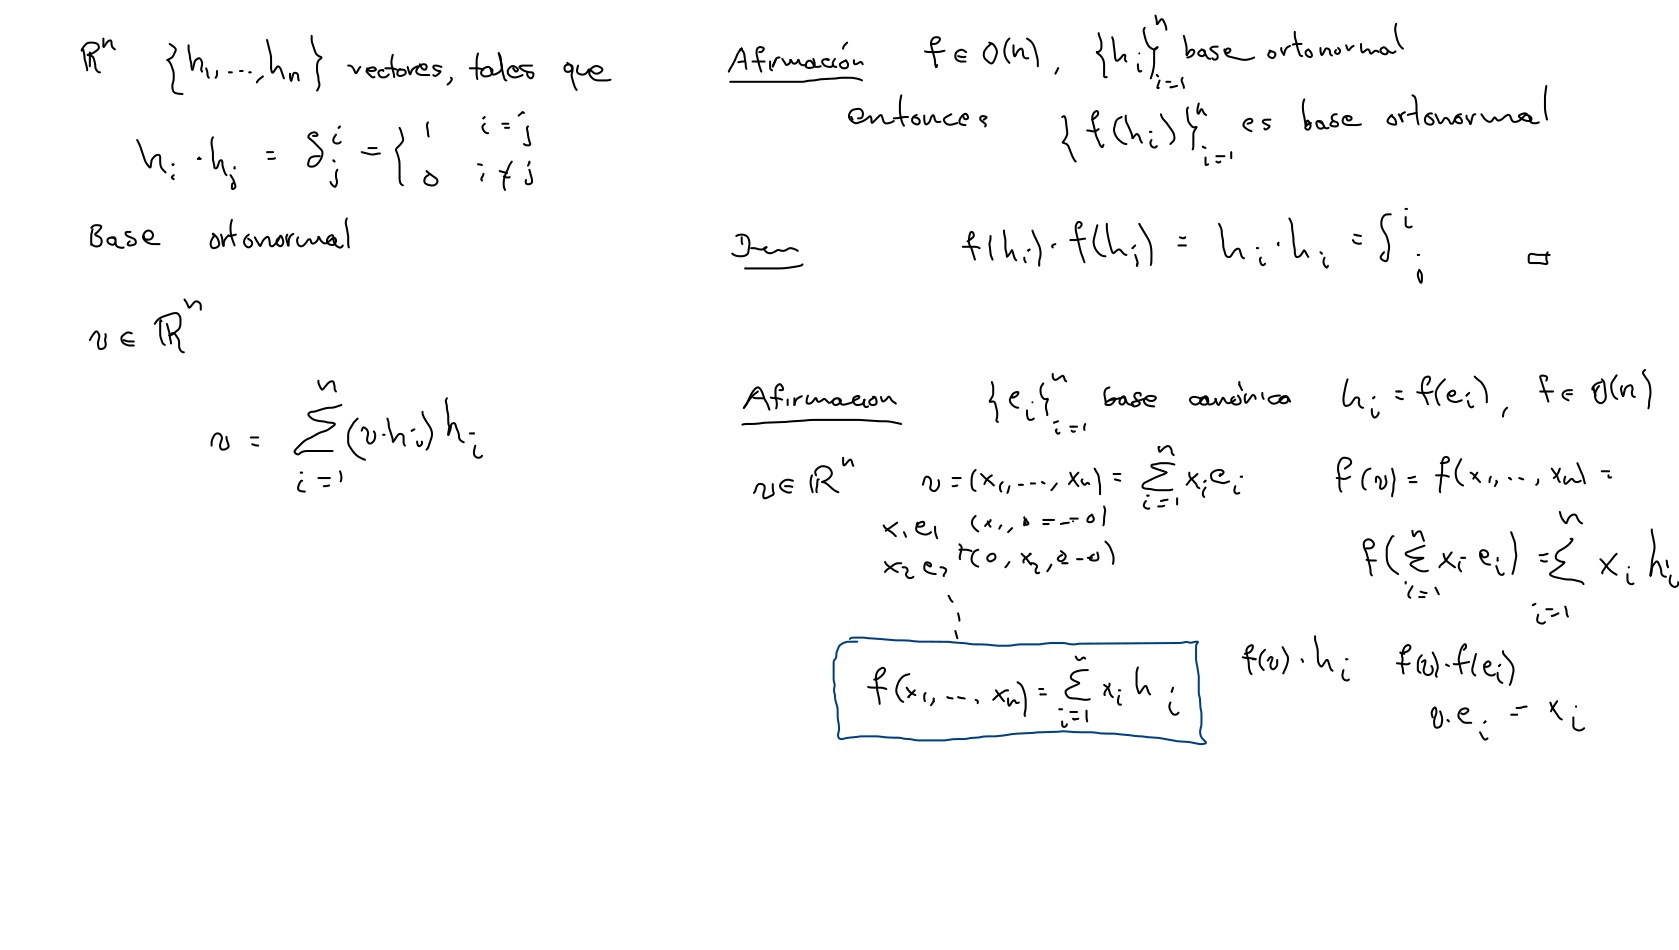 ℝⁿ {h₁,...,hₙ} vectores, tales que
hᵢ · hⱼ = δⁱⱼ = { 1 i = j
0 i ≠ j
Base ortonormal
v ∈ ℝⁿ
v = ∑ᵢ₌₁ⁿ (v·hᵢ) hᵢ
Afirmación f ∈ O(n), {hᵢ}ⁿᵢ₌₁ base ortonormal
entonces {f(hᵢ)}ⁿᵢ₌₁ es base ortonormal
Dem f(hᵢ)·f(hⱼ) = hᵢ·hⱼ = δⁱⱼ □
Afirmacion {eᵢ}ⁿᵢ₌₁ base canónica hᵢ = f(eᵢ), f ∈ O(n)
v ∈ ℝⁿ v = (x₁,...,xₙ) = ∑ᵢ₌₁ⁿ xᵢeᵢ f(v) = f(x₁,...,xₙ) =
x₁e₁ (x₁, 0 - - - 0)
x₂e₂ + (0, x₂, 0 - 0)
f(∑ᵢ₌₁ⁿ xᵢ eᵢ) = ∑ᵢ₌₁ⁿ xᵢ hᵢ
f(x₁, ..., xₙ) = ∑ᵢ₌₁ⁿ xᵢ hᵢ
f(v)·hᵢ f(v)·f(eᵢ)
v·eᵢ = xᵢ